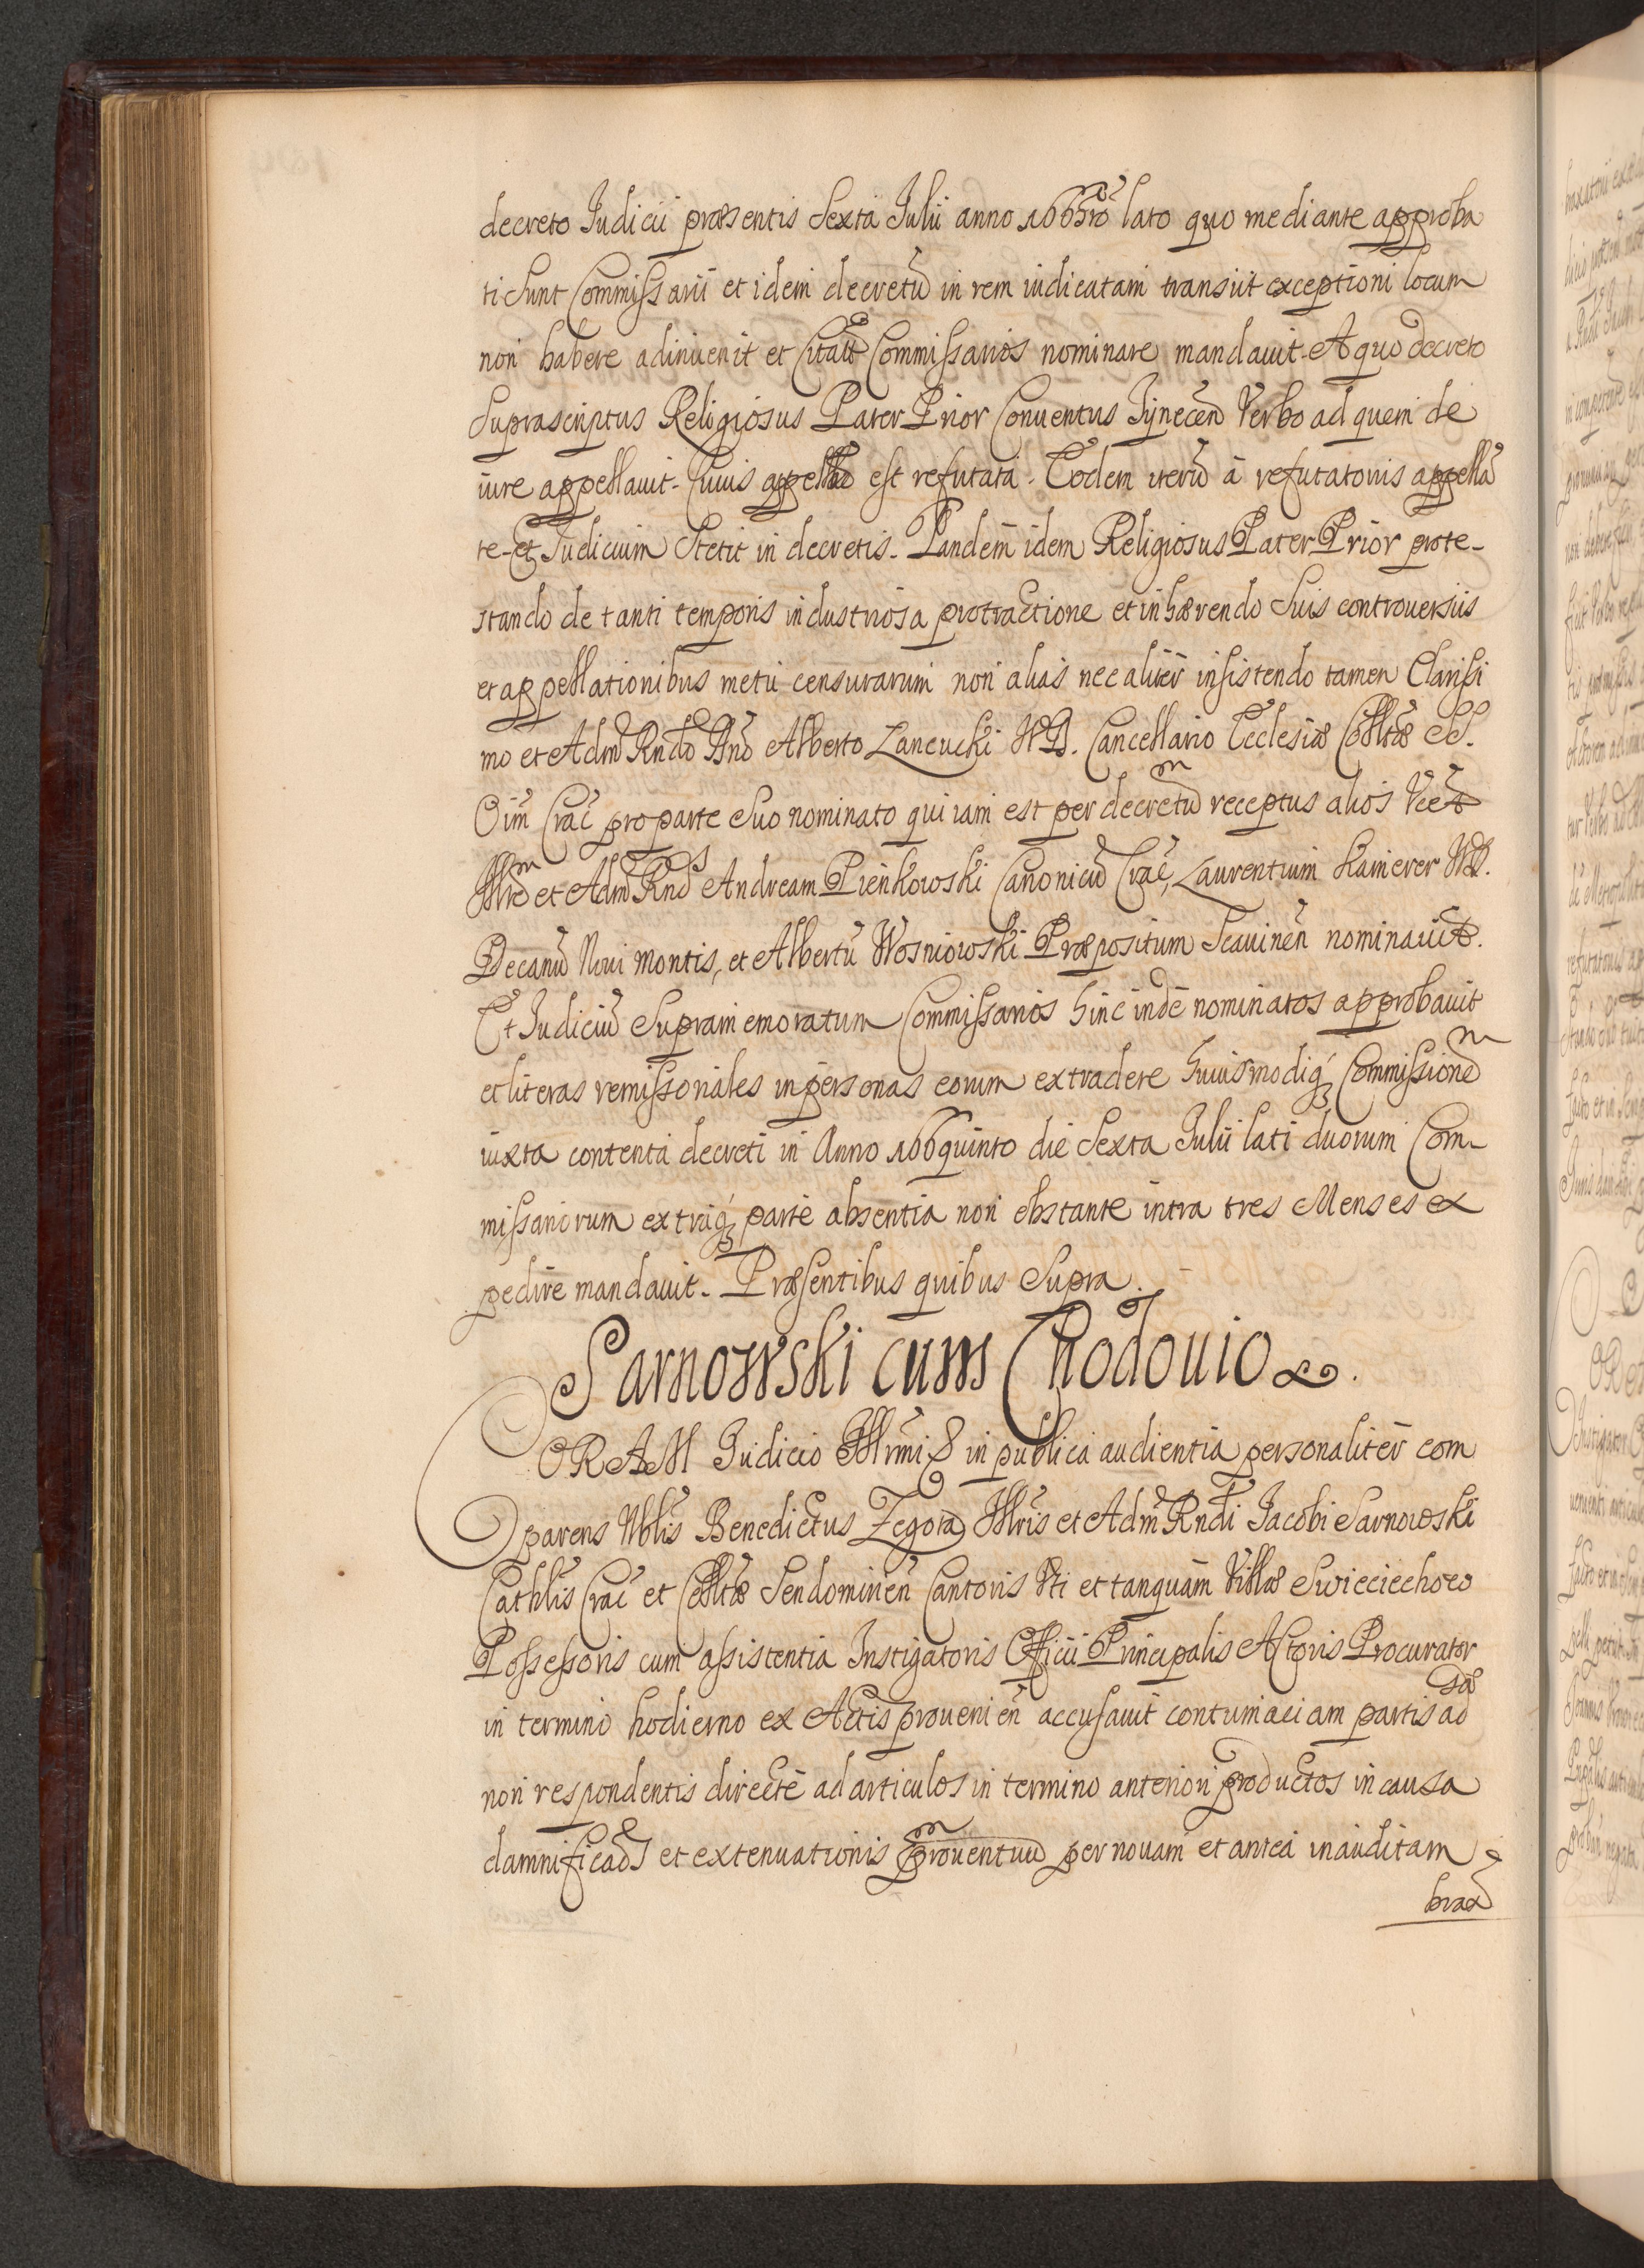 decreto Judicii præsentis Sexta Julii anno 1665to lato quo mediante approba
ti sunt Commissarii et idem decretũ in rem iudicatam transiit exceptioni locum
non habere adinuenit et Citatũ Commissarios nominare mandauit. A quo decreto
Suprascriptus Religiosus Pater Prior Conuentus Tynecen̄ Verbo ad quem de
iure appellauit. Cuius appellõ est refutata. Eodem iterũ à refutatoriis appellā
te. Et Judicium Stetit in decretis. Tandem idem Religiosus Pater Prior prote-
stando de tanti temporis industriosa protractione et inhærendo Suis controuersiis
et appellationibus metu censurarum non alias nec aliter insistendo tamen Clarissi
mo et Adm̄ Rndo Dn̄o Alberto Lancucki V.D. Cancellario Ecclesiæ Collt̃æ SS.
Oim̃ Crac̃ pro parte Suo nominato qui iam est per decretũm receptus alios
et Adm̄ Rnd̃s Andream Pienkowski Canonicũ Crac̃, Laurentium Kamerer V.D.
Decanũ Noui Montis, et Albertũ Wosniowski Præpositum Scauinen̄ nominauit.
Et Judiciũ Supramemoratum Commissarios hinc inde nominatos approbauit
et literas remissoriales in personas eorum extradere huiusmodiq́; Commissionẽm
iuxta contenta decreti in Anno 166quinto die Sexta Julii lati duorum Com-
missariorum ex traq́; parte absentia non obstante intra tres Menses ex
pedire mandauit. Præsentibus quibus Supra.
Sarnowski cum Chodouio.
CORAM Judicio Illrm̃i & in publica audientia personaliter com
parens Nb̃lis Benedictus Zegota Illris et Adm̄ Rnd̃i Jacobi Sarnowski
Cathlis̃ Crac̃ et Collt̃æ Sendominen̄ Cantoris Vti et tanquam Villæ Swieciechow
Possessoris cum assistentia Instigatoris Officii Principalis Actoris Procurator
in termino hodierno ex Actis prouenien̄ accusauit contumaciam partis adsæ
non respondentis directe ad articulos in termino anteriori productos in causa
et extenuationis prouentuũm per nouam et antea inauditam
brax